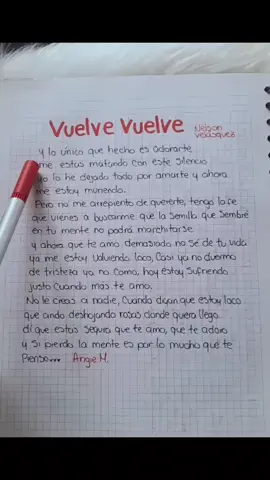 Vuelve Vuelve
Nelson Velasquez
Y lo único que hecho es adorarte
me estas matando con este silencio
yo lo he dejado todo por amarte y ahora
me estoy muriendo.
Pero no me arrepiento de quererte, tengo la fe
que vienes a buscarme que la semilla que sembré
en tu mente no podrá marchitarse
y ahora que te amo demasiado no sé de tu vida
ya me estoy volviendo loco, casi ya no duermo
de tristeza ya no como, hoy estoy sufriendo
justo cuando más te amo.
No le creas a nadie, cuando digan que estoy loco
que ando deshojando rosas donde quiera llego
dí que estás segura que te amo, que te adoro
y si pierdo la mente es por lo mucho qué te
pienso... Angie M.